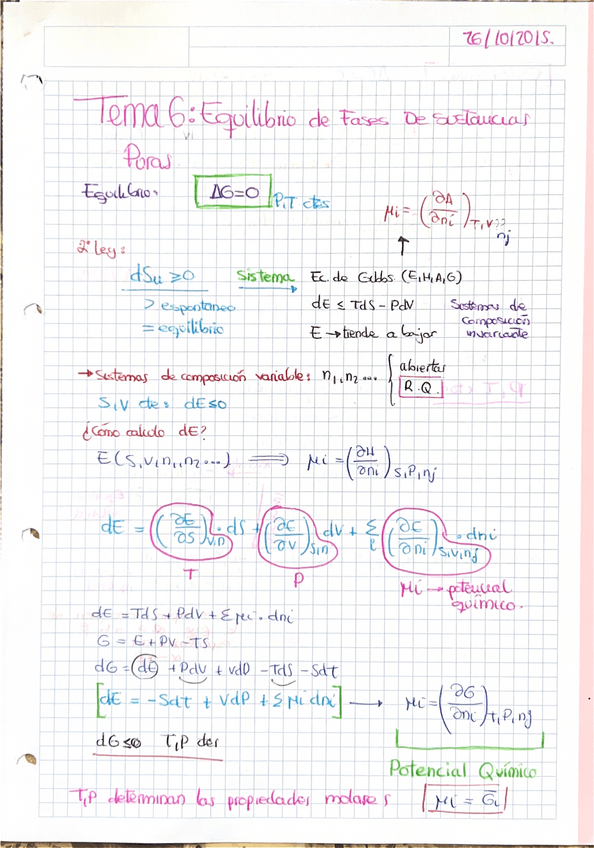 26/10/2015.
Tema 6: Equilibrio de Fases De Sustancias
Puras.
Equilibrio: ΔG=0 P,T ctes
μi = (∂A/∂ni)T,V,nj
2ª Ley:
dSu ≥ 0 Sistema → Ec. de Gibbs (E,H,A,G)
> espontaneo dE ≤ TdS - PdV Sistemas de composición invariante
= equilibrio E → tiende a bajar
→ Sistemas de composición variable: n1, n2 ... { abiertas
R.Q.
S,V ctes: dE ≤ 0
¿Cómo calculo dE?
E(S,V,n1,n2...) ⟹ μi = (∂H/∂ni)S,P,nj
dE = (∂E/∂S)V,n · dS + (∂E/∂V)S,n dV + Σi (∂E/∂ni)S,V,nj · dni
T P μi → potencial químico.
dE = TdS + PdV + Σμi · dni
G = E + PV - TS
dG = dE + PdV + VdP - TdS - SdT
[dE = -SdT + VdP + Σμi dni] → μi = (∂G/∂ni)T,P,nj
dG ≤ 0 T,P ctes
Potencial Químico
T,P determinan las propiedades molares μi = G̅i